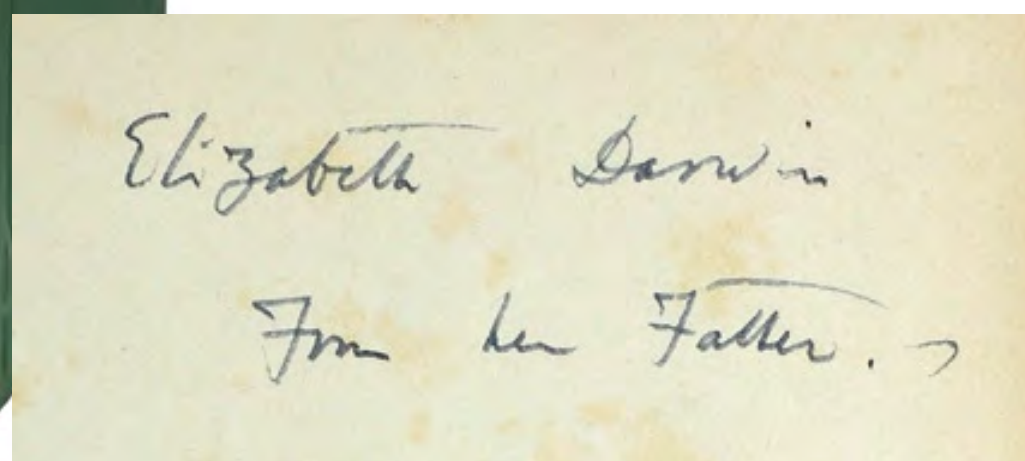 Elizabeth Darwin
From her Father.